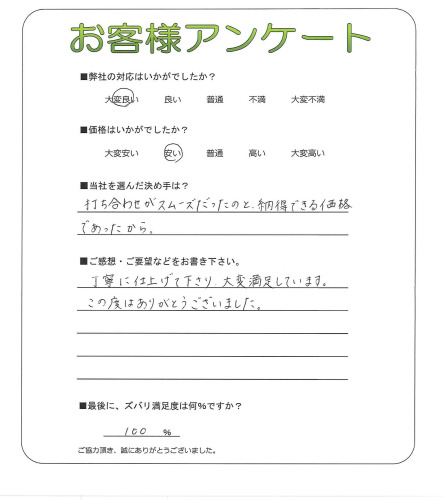 お客様アンケート
■弊社の対応はいかがでしたか?
大変良い 良い 普通 不満 大変不満
■価格はいかがでしたか?
大変安い 安い 普通 高い 大変高い
■当社を選んだ決め手は?
打ち合わせがスムーズだったのと、納得できる価格
であったから。
■ご感想・ご要望などをお書き下さい。
丁寧に仕上げて下さり、大変満足しています。
この度はありがとうございました。
■最後に、ズバリ満足度は何%ですか?
100 %
ご協力頂き、誠にありがとうございました。